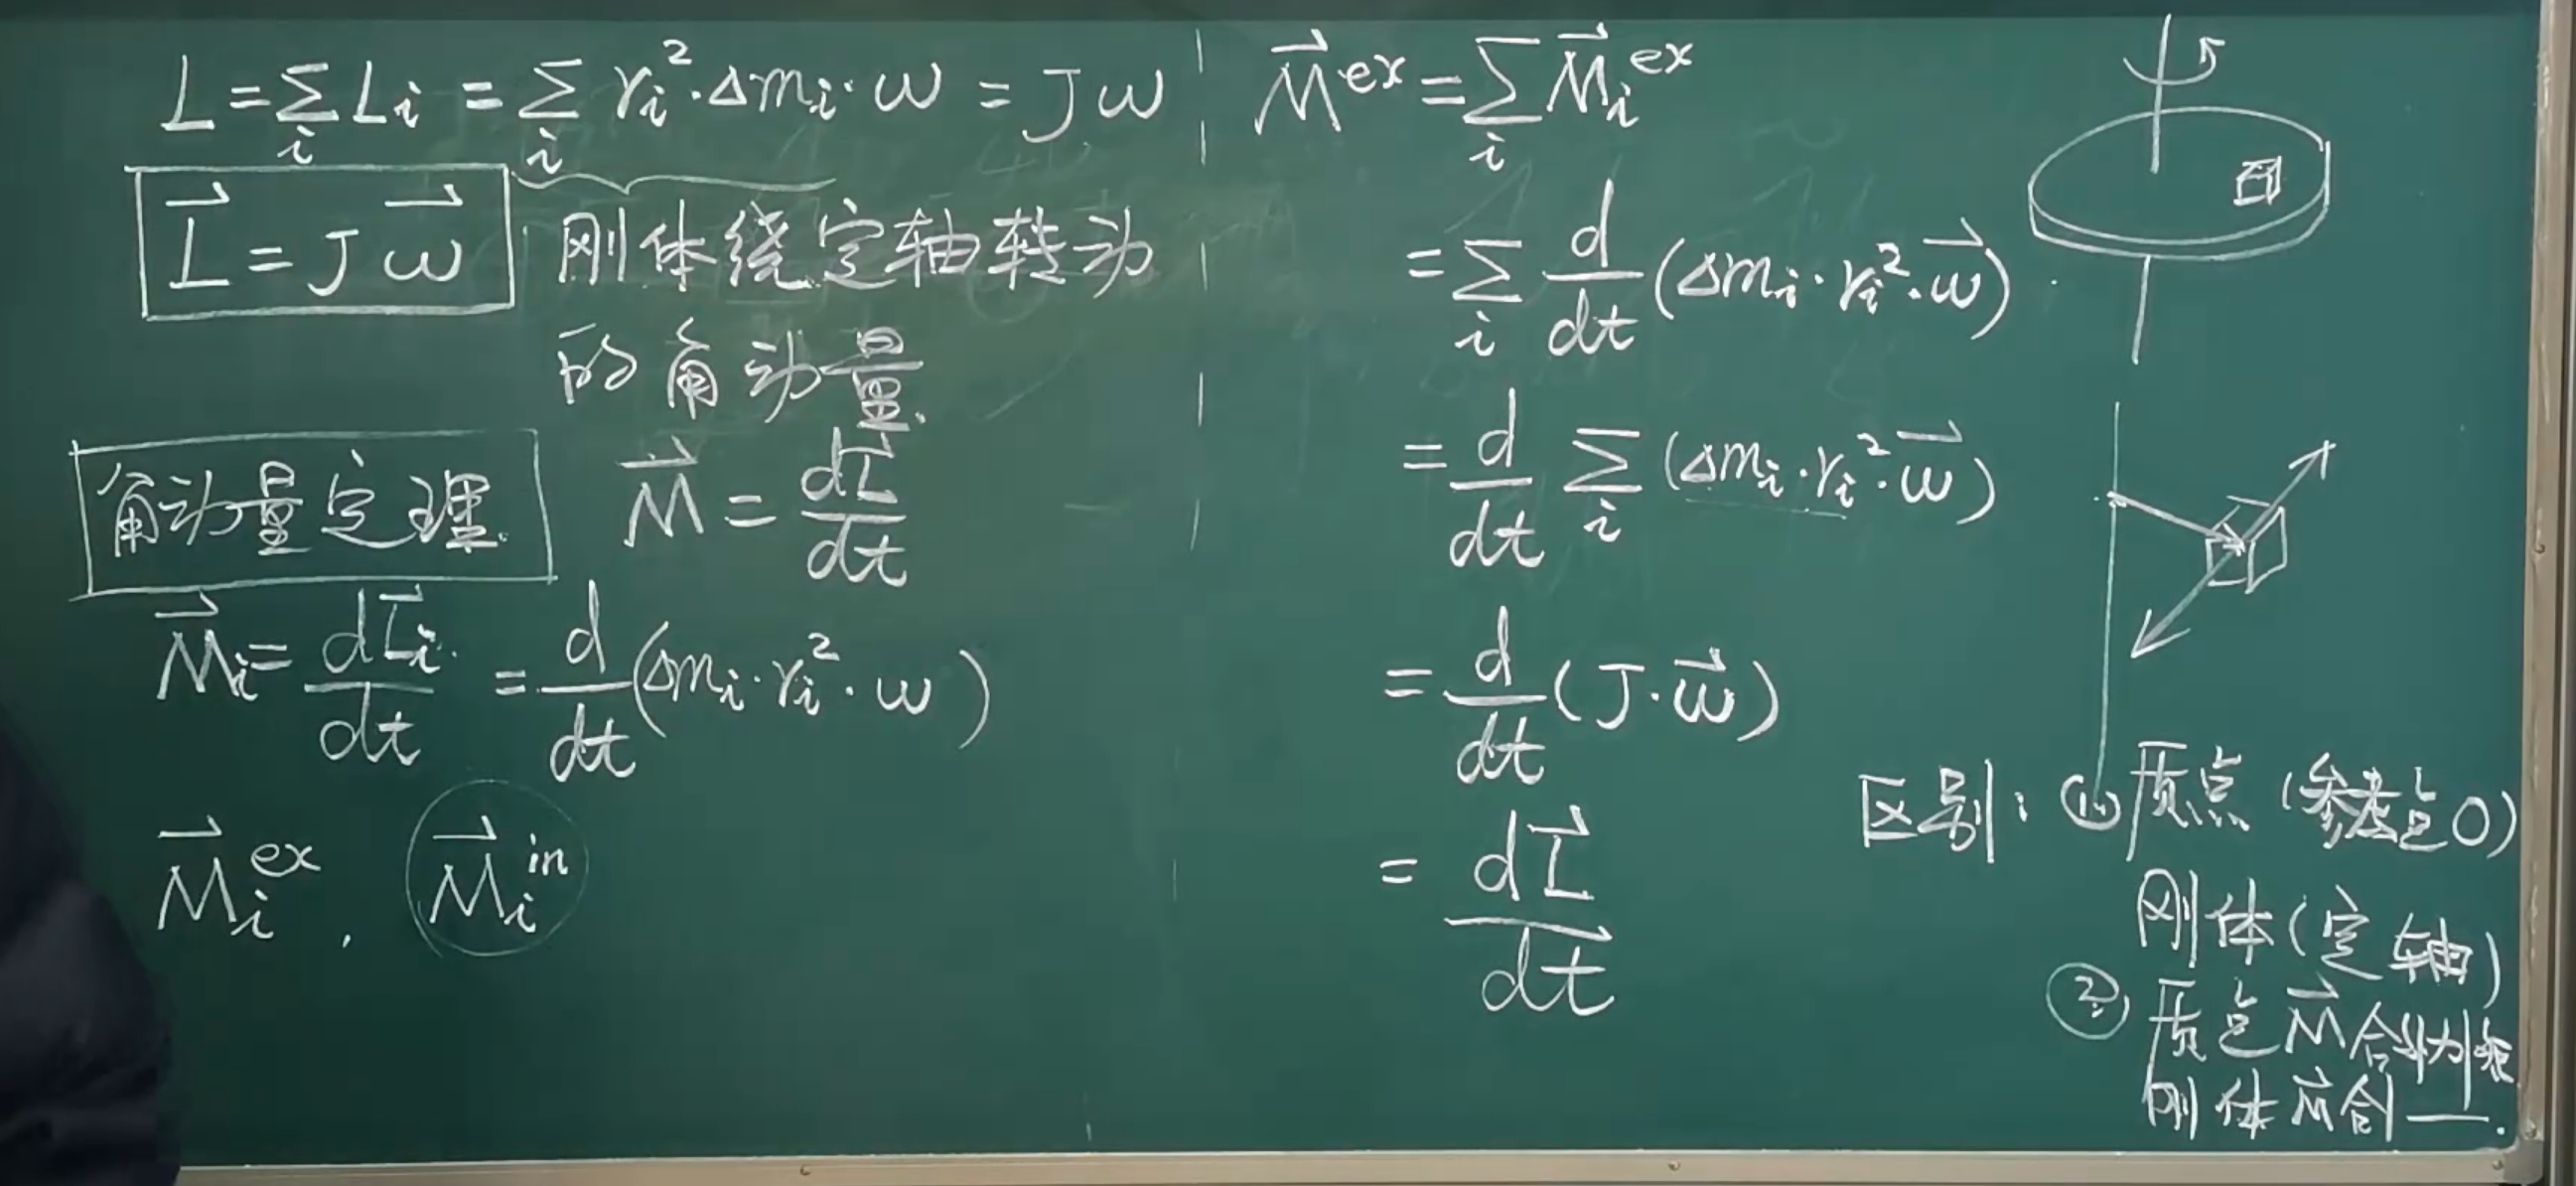 L = ∑ᵢ Lᵢ = ∑ᵢ rᵢ²·Δmᵢ·ω = Jω
L⃗ = Jω⃗ 刚体绕定轴转动
的角动量.
角动量定理. M⃗ = dL⃗/dt
M⃗ᵢ = dL⃗ᵢ/dt = d/dt(Δmᵢ·rᵢ²·ω)
M⃗ᵢ^ex , M⃗ᵢ^in
M⃗^ex = ∑ᵢ M⃗ᵢ^ex
= ∑ᵢ d/dt(Δmᵢ·rᵢ²·ω⃗)
= d/dt ∑ᵢ (Δmᵢ·rᵢ²·ω⃗)
= d/dt(J·ω⃗)
= dL⃗/dt
区别: ① 质点 (参考点O)
刚体(定轴)
② 质点 M⃗合外力矩
刚体 M⃗合 —.